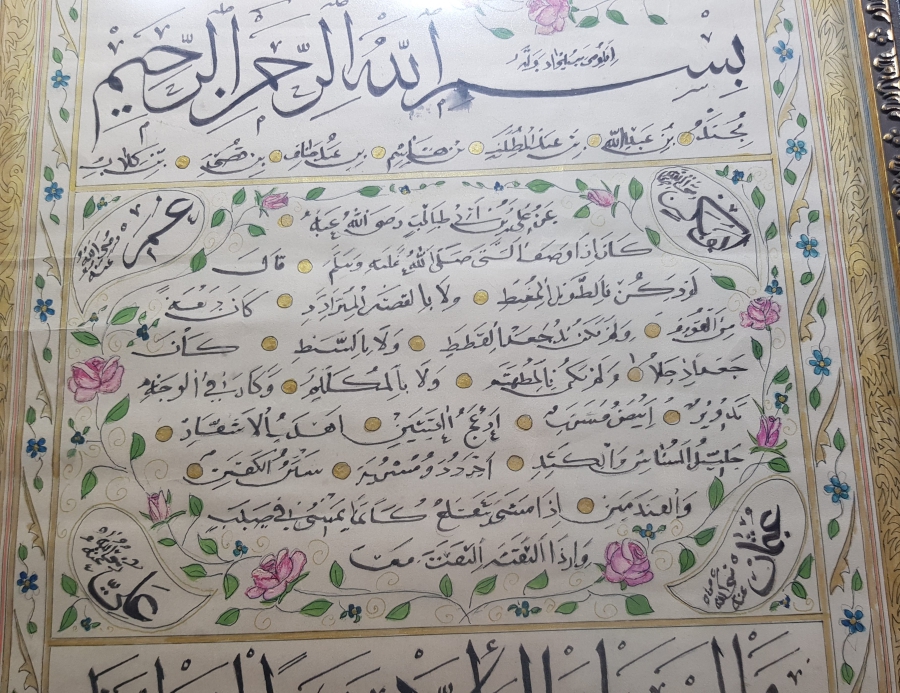 بسم الله الرحمن الرحيم
محمد بن عبد الله بن عبد المطلب بن هاشم بن عبد مناف بن قصي بن كلاب
عن علي بن ابي طالب رضي الله عنه
ابو بكر
عمر رضي الله عنه
كان اذا وصف النبي صلى الله عليه وسلم قال
لم يكن بالطويل الممغط ولا بالقصير المتردد كان ربعة
من القوم ولم يكن بالجعد القطط ولا بالسبط كان
جعدا رجلا ولم يكن بالمطهم ولا بالمكلثم وكان في الوجه
تدوير ابيض مشرب ادعج العينين اهدب الاشفار
جليل المشاش والكتد اجرد ذو مسربة شثن الكفين
والقدمين اذا مشى تقلع كانما يمشي في صبب
واذا التفت التفت معا
عثمان رضي الله عنه
علي رضي الله عنه